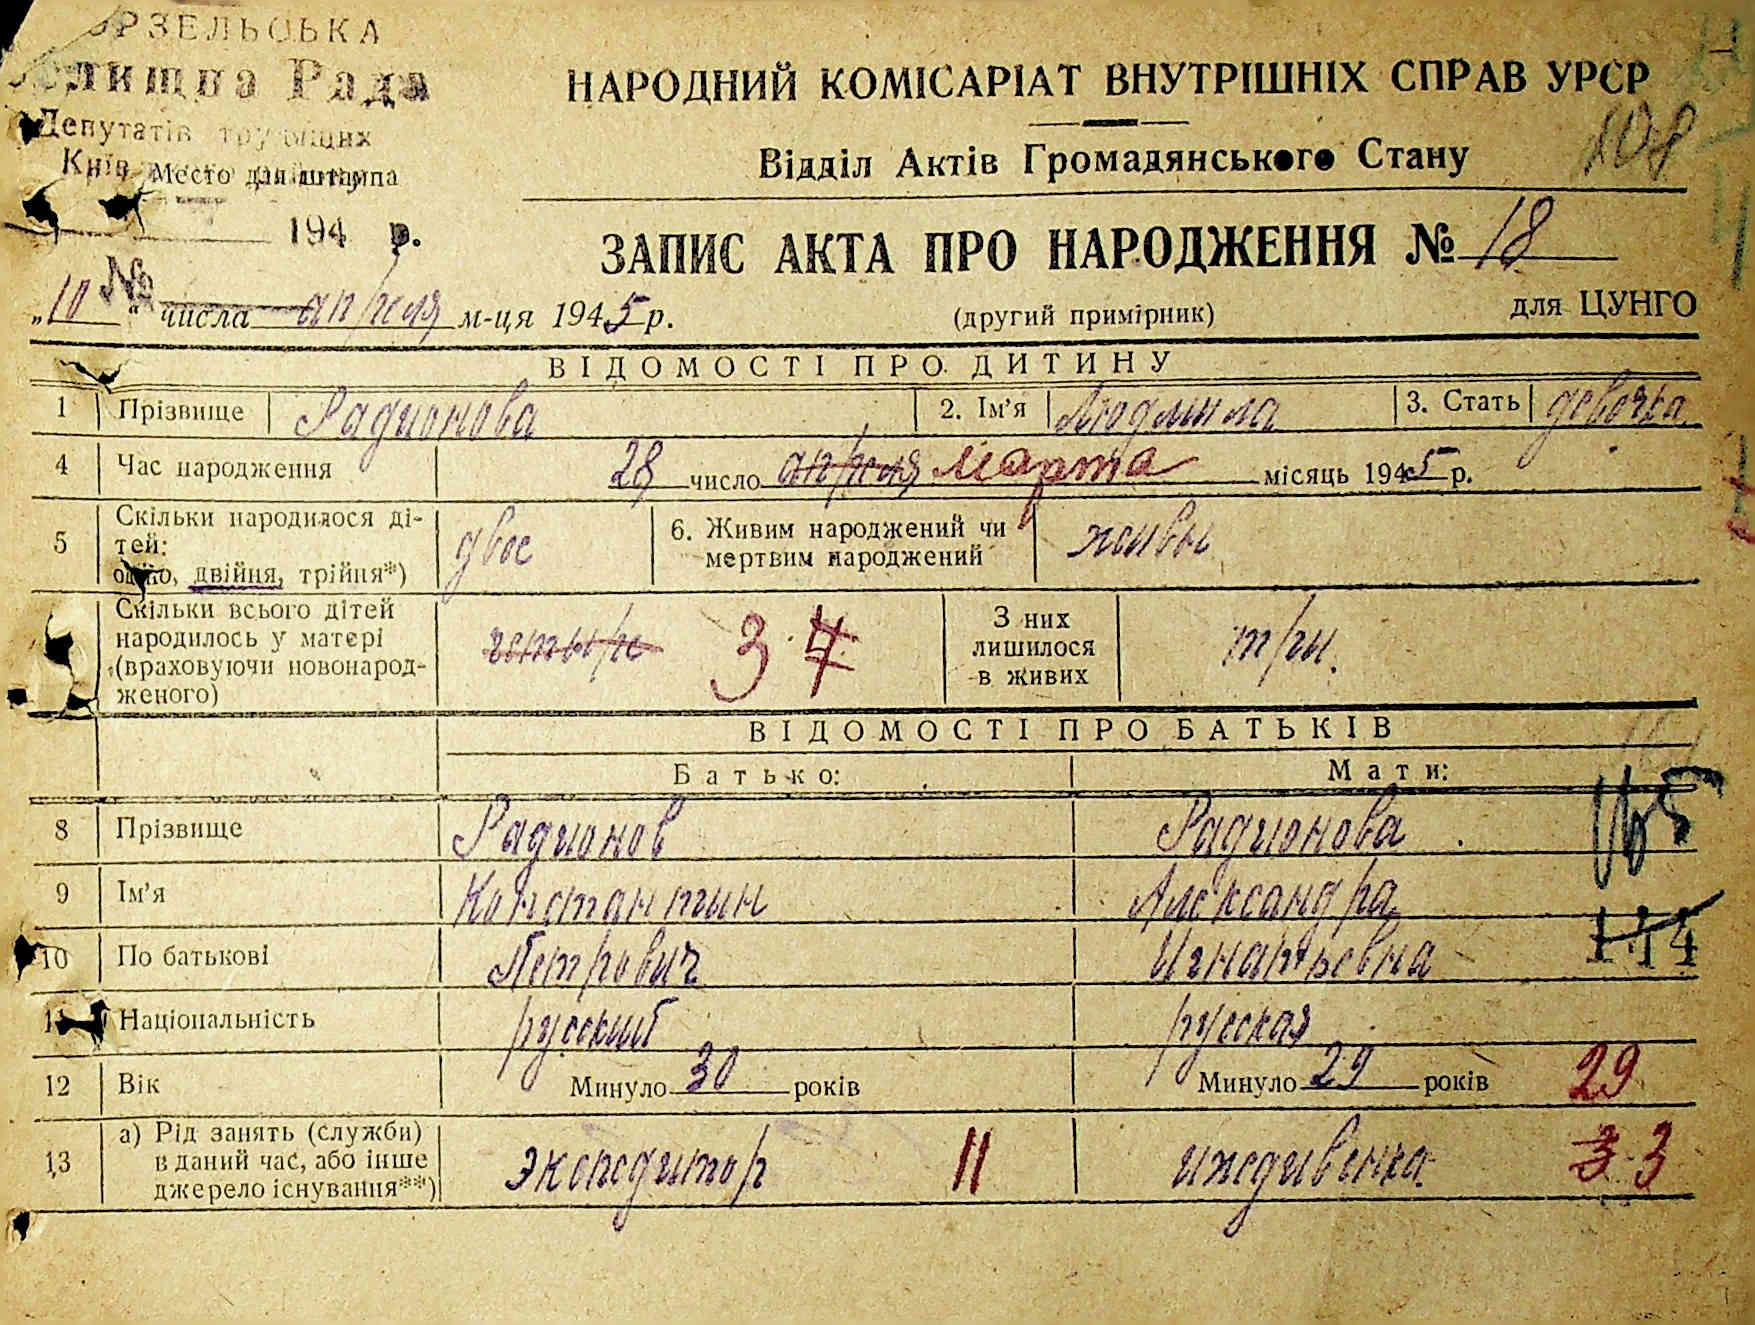 РЗЕЛЬСЬКА
елищна Рада
Депутатів трудящих
Место для штампа
194 р.
№
„10“ числа апреля м-ця 1945 р.
НАРОДНИЙ КОМІСАРІАТ ВНУТРІШНІХ СПРАВ УРСР
108
Відділ Актів Громадянського Стану
ЗАПИС АКТА ПРО НАРОДЖЕННЯ № 18
(другий примірник)
для ЦУНГО
ВІДОМОСТІ ПРО ДИТИНУ
1 Прізвище Радионова 2. Ім’я Людмила 3. Стать девочка
4 Час народження 28 число апреля марта місяць 1945 р.
5 Скільки народилося ді-
тей:
одно, двійня, трійня*)
двое
6. Живим народжений чи
мертвим народжений
живы
Скільки всього дітей
народилось у матері
(враховуючи новонарод-
женого)
четыре 3 4
З них
лишилося
в живих
три.
ВІДОМОСТІ ПРО БАТЬКІВ
Батько: Мати:
8 Прізвище Радионов Радионова
165
9 Ім’я Константин Александра
144
10 По батькові Петрович Игнатьевна
11 Національність русский русская
12 Вік Минуло 30 років Минуло 29 років 29
13 а) Рід занять (служби)
в даний час, або інше
джерело існування**)
экспедитор 11 иждивенка 3 3